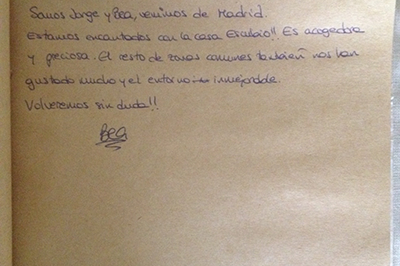 Somos Jorge y Bea, venimos de Madrid.
Estamos encantados con la casa !! Es acogedora
y preciosa. El resto de zonas comunes también nos han
gustado mucho y el entorno inmejorable.
Volveremos sin duda!!
Bea